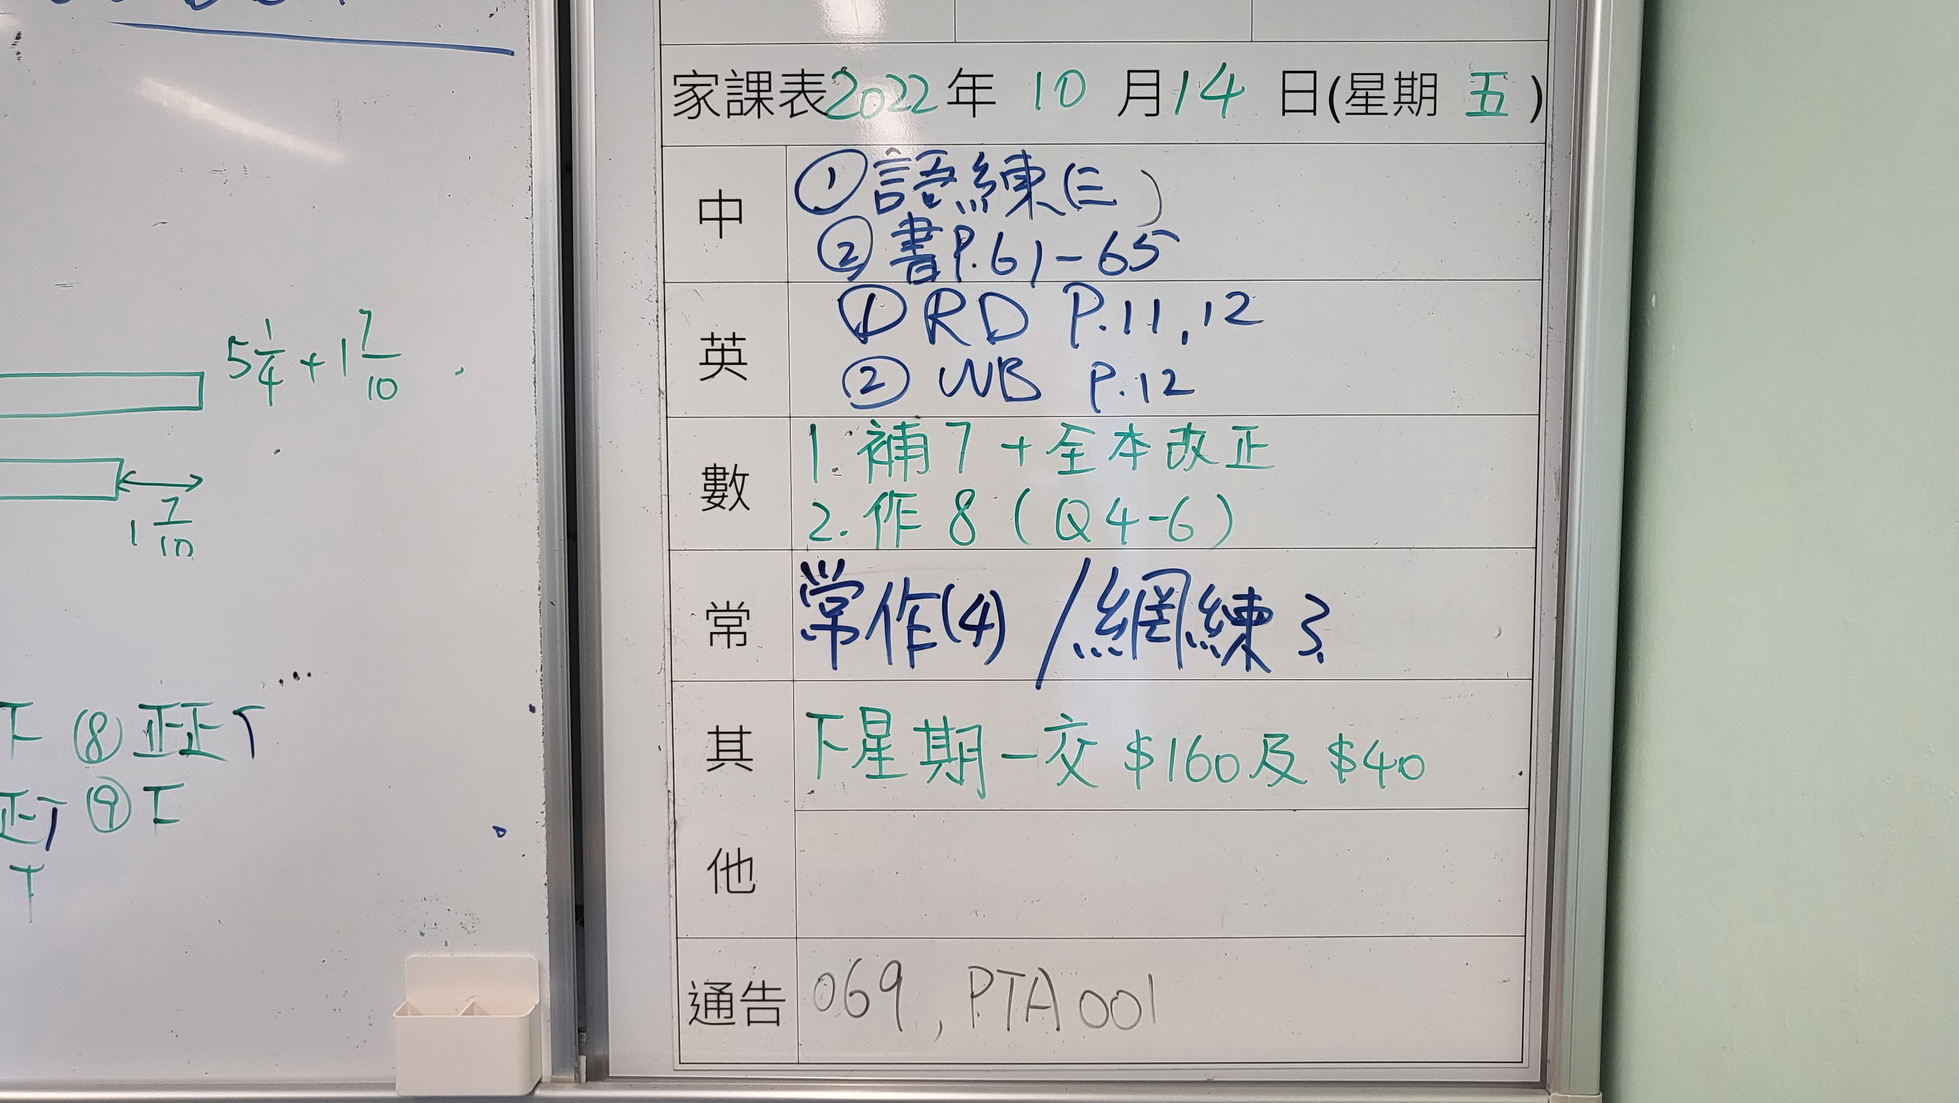 5 1/4 + 1 7/10
1 7/10
下 ⑧ 正正丅
正丅 ⑨ 下
家課表 2022 年 10 月 14 日(星期 五)
中
①語練(三)
②書P.61-65
英
① RD P.11,12
② WB P.12
數
1. 補7+全本改正
2. 作8(Q4-6)
常
常作(4) /網練3
其他
下星期一交 $160及 $40
通告
069, PTA001